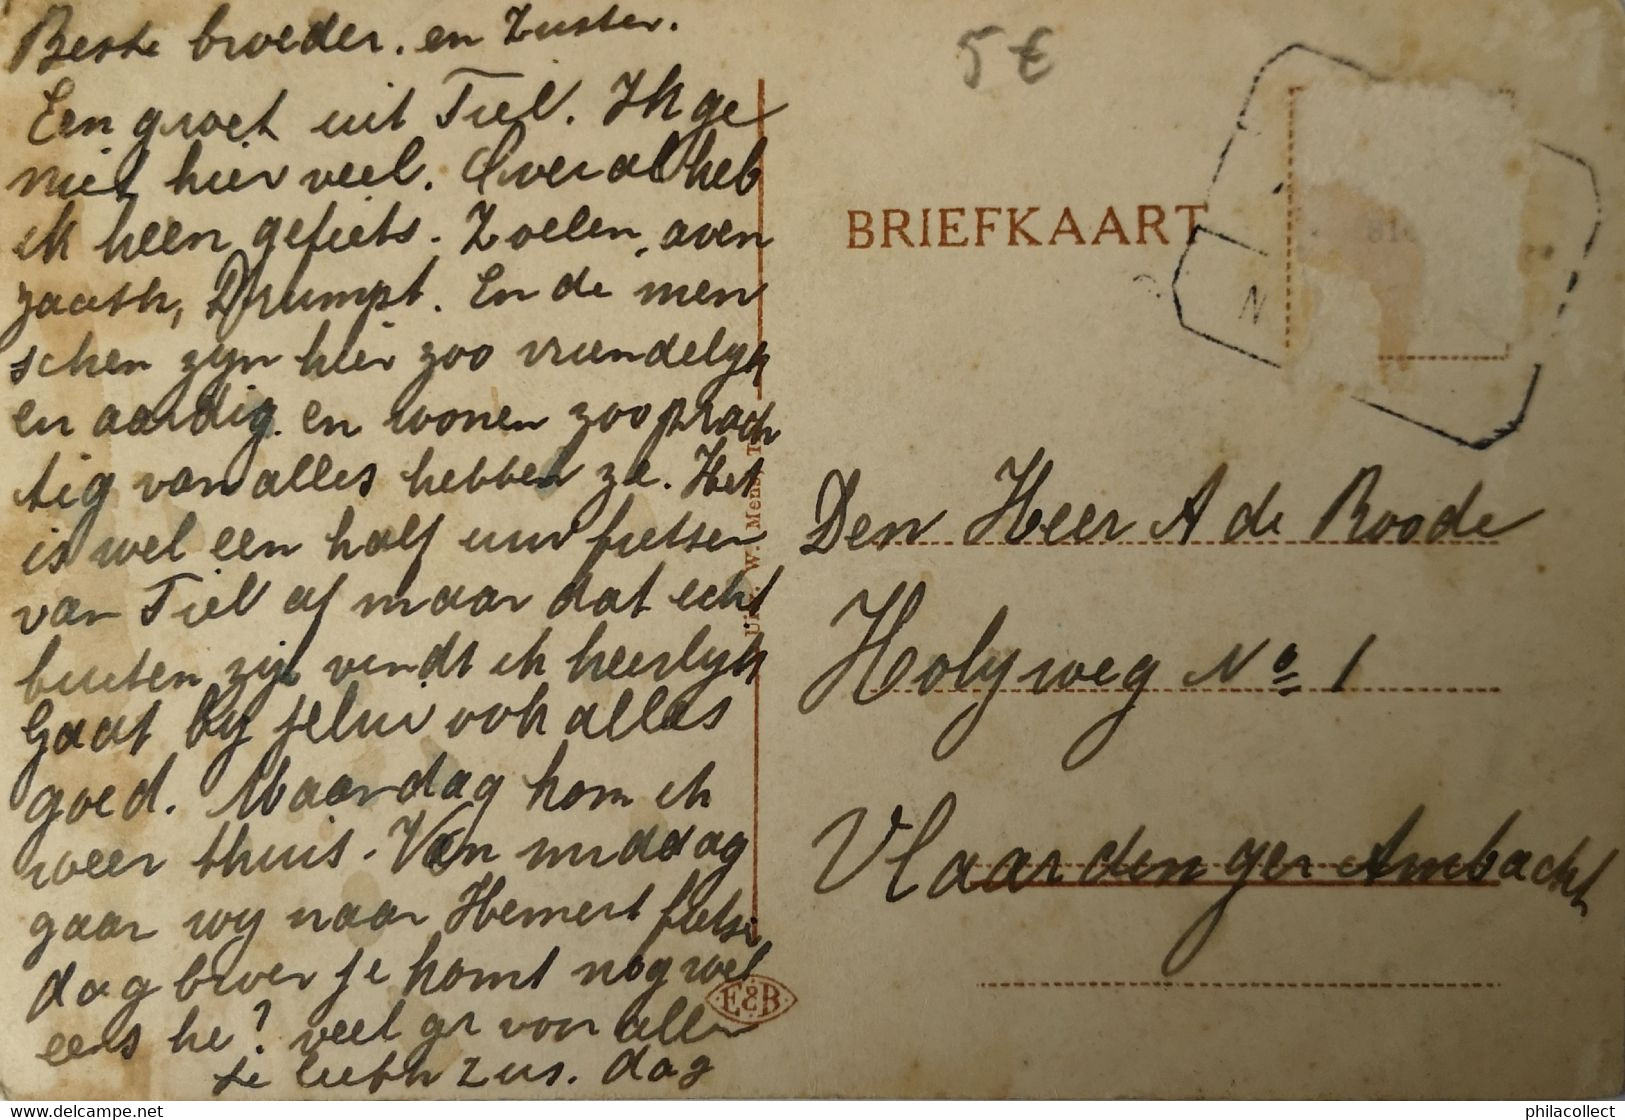 Beste broeder. en Zuster.
Een groet uit Tiel. Ik ge
niet hier veel. Overal heb
ik heen gefiets. Zoelen, aven
zaath, Drumpt. En de men
schen zyn hier zoo vriendelyk
en aardig. en wonen zoo prach
tig van alles hebben ze. Het
is wel een half uur fietsen
van Tiel af maar dat echt
buiten zyt vindt ik heerlyk
Gaat by jelui ook alles
goed. Maandag kom ik
weer thuis. Van middag
gaan wy naar Hemert fietsen
dag broer je komt nog wel
eens he? veel gr voor allen
je zus. dag
5 €
BRIEFKAART
N
Den Heer A de Roode
Holyweg No 1
Vlaardinger Ambacht
E&B
delcampe.net
philacollect